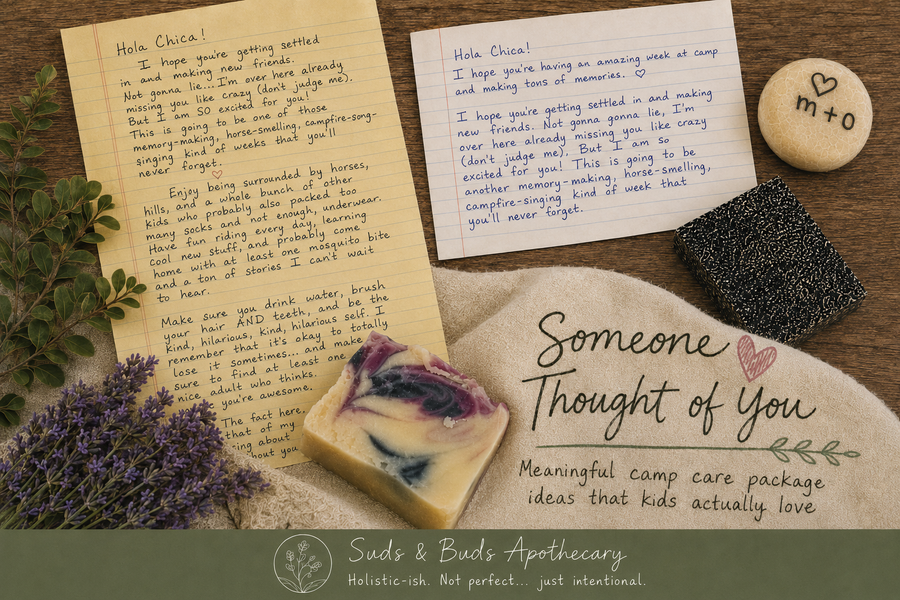 Hola Chica!
I hope you're getting settled
in and making new friends.
Not gonna lie... I'm over here already
missing you like crazy (don't judge me).
But I am SO excited for you!
This is going to be one of those
memory-making, horse-smelling, campfire-song-
singing kind of weeks that you'll
never forget.
Enjoy being surrounded by horses,
hills, and a whole bunch of other
kids who probably also packed too
many socks and not enough, underwear.
Have fun riding every day, learning
cool new stuff, and probably come
home with at least one mosquito bite
and a ton of stories I can't wait
to hear.
Make sure you drink water, brush
your hair AND teeth, and be the
kind, hilarious, kind, hilarious self. I
remember that it's okay to totally
lose it sometimes... and make
sure to find at least one
nice adult who thinks.
you're awesome.
The fact here.
that of my
ing about
hout you
Hola Chica!
I hope you're having an amazing week at camp
and making tons of memories. ♡
I hope you're getting settled in and making
new friends. Not gonna gonna lie, I'm
over here already missing you like crazy
(don't judge me). But I am so
excited for you! This is going to be
another memory-making, horse-smelling,
campfire-singing kind of week that
you'll never forget.
m + o
Someone
Thought of You
Meaningful camp care package
ideas that kids actually love
Suds & Buds Apothecary
Holistic-ish. Not perfect... just intentional.